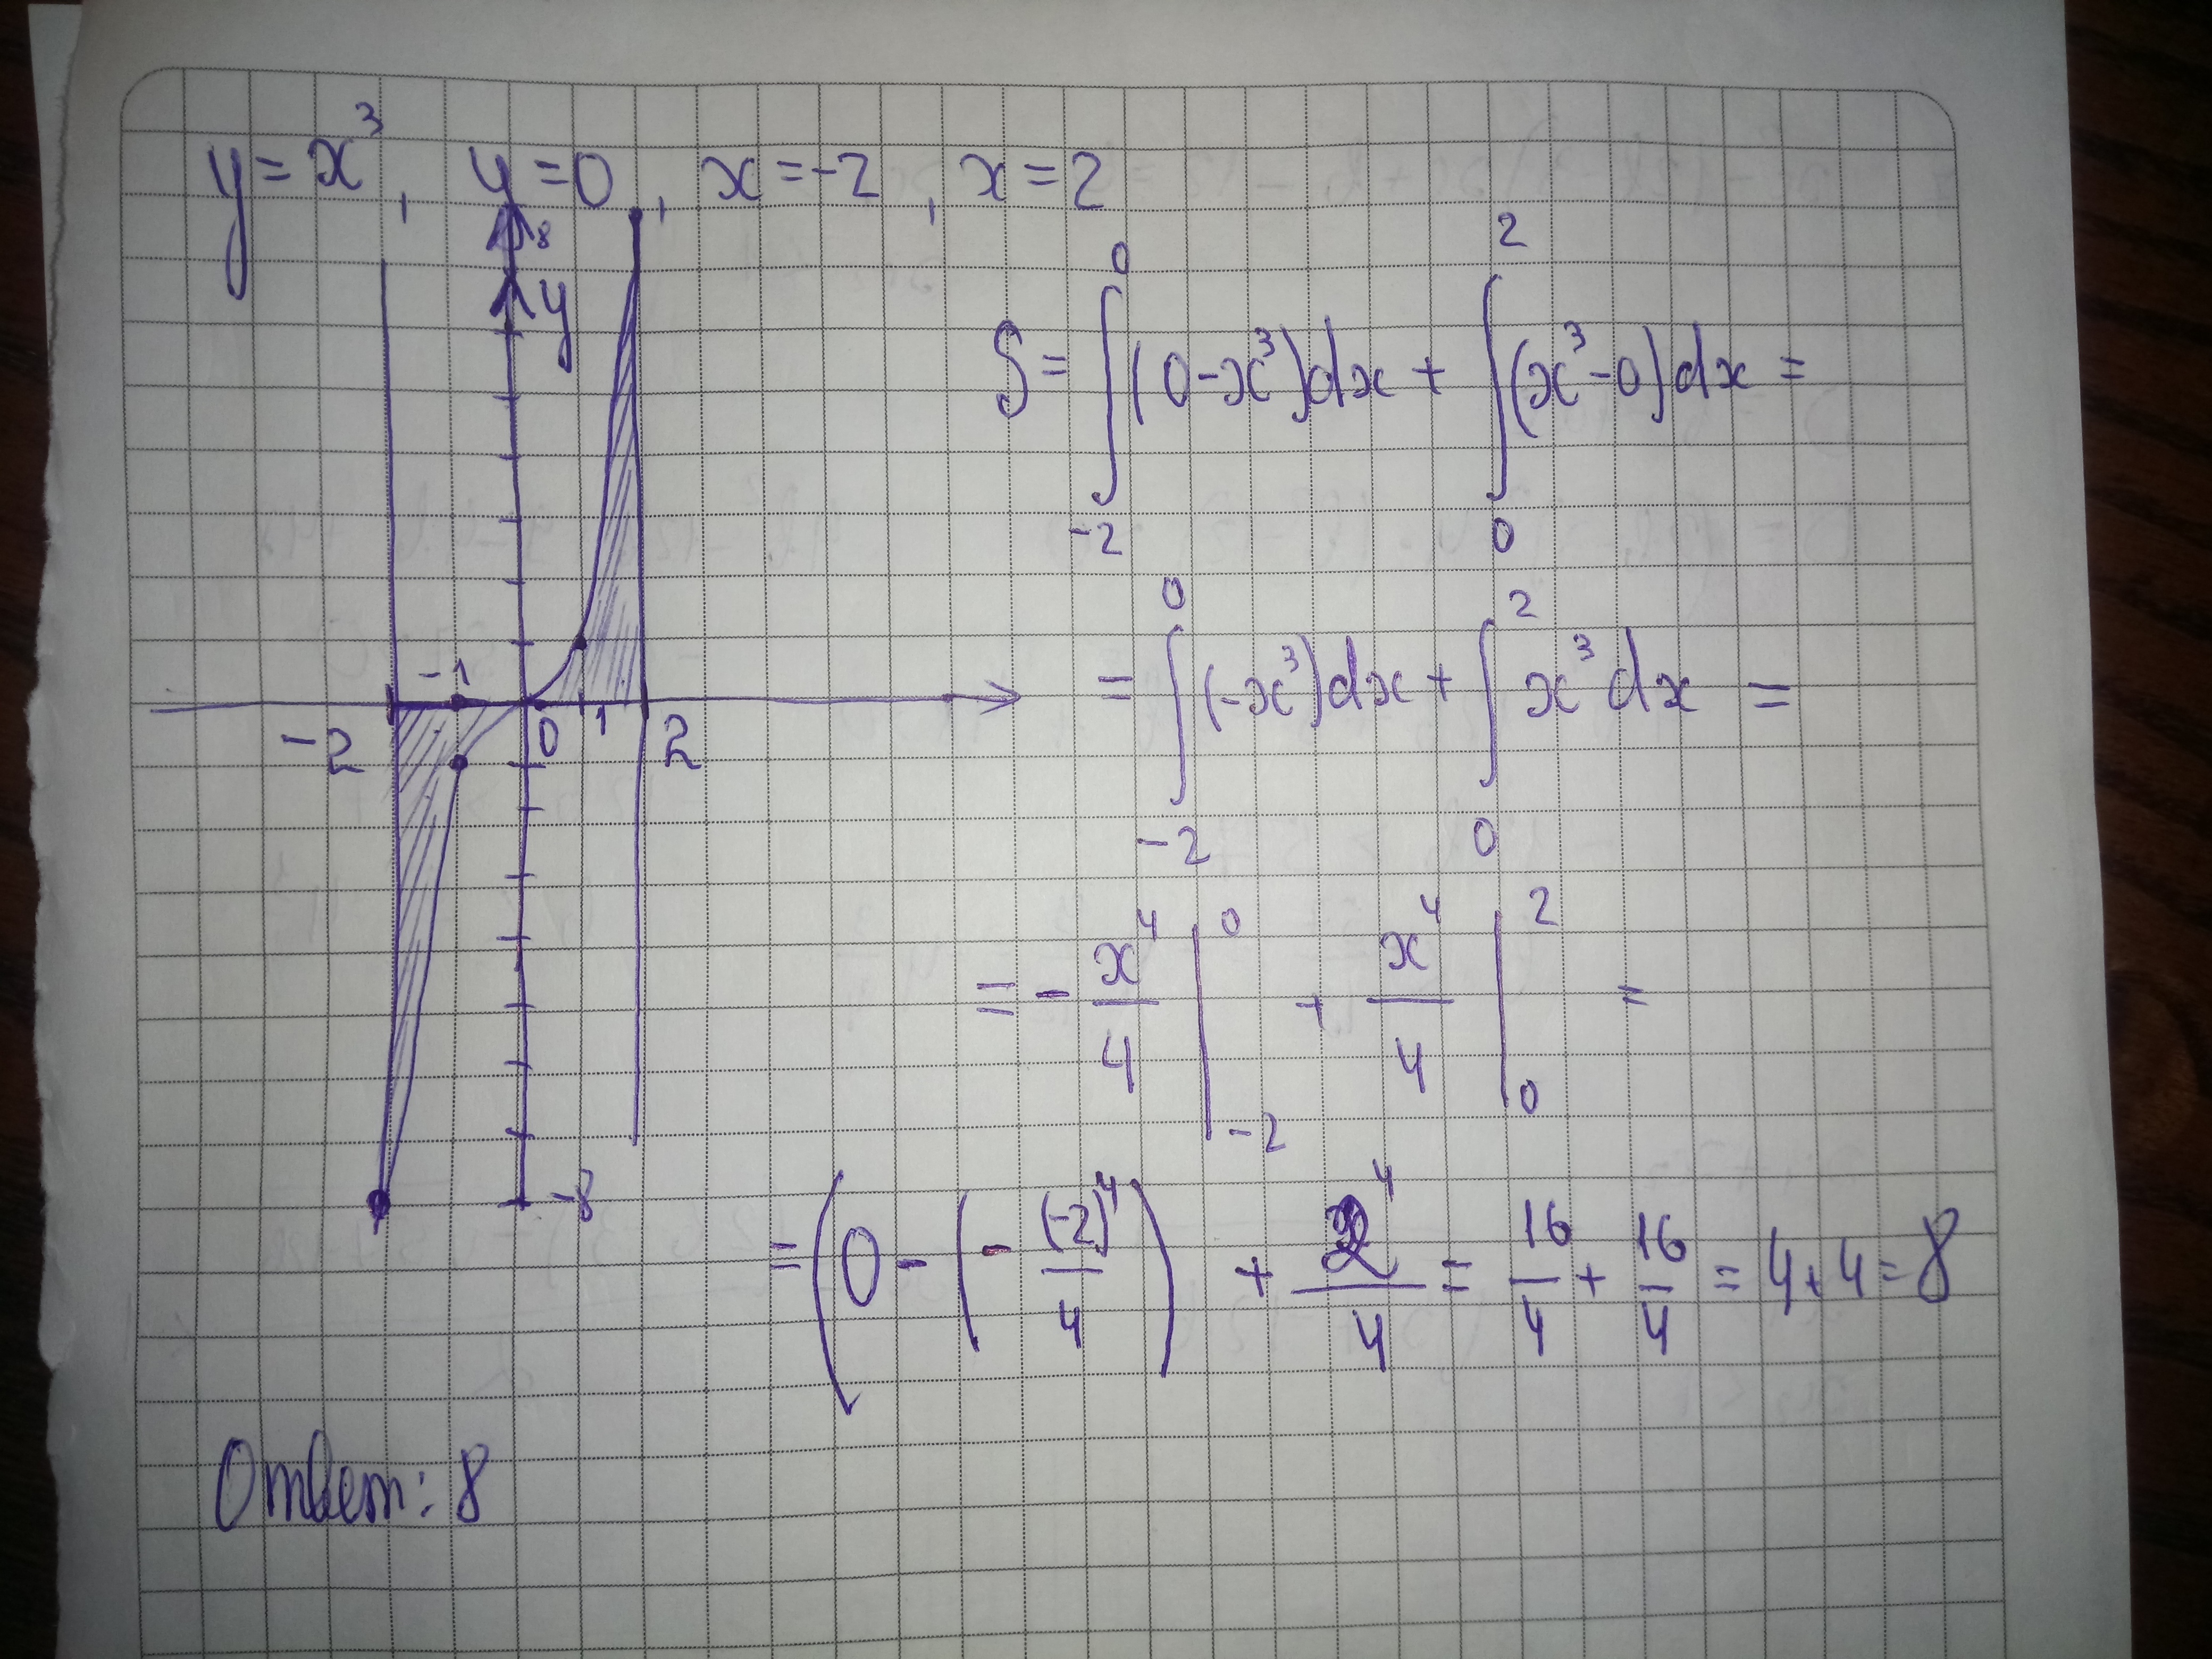 y = x³, y = 0, x = -2, x = 2
8
y
S = ∫₋₂⁰ (0 - x³)dx + ∫₀² (x³ - 0)dx =
= ∫₋₂⁰ (-x³)dx + ∫₀² x³ dx =
-1
-2 0 1 2
= - x⁴/4 |₋₂⁰ + x⁴/4 |₀² =
-8
= (0 - (- (-2)⁴/4) + 2⁴/4 = 16/4 + 16/4 = 4 + 4 = 8
Ответ: 8